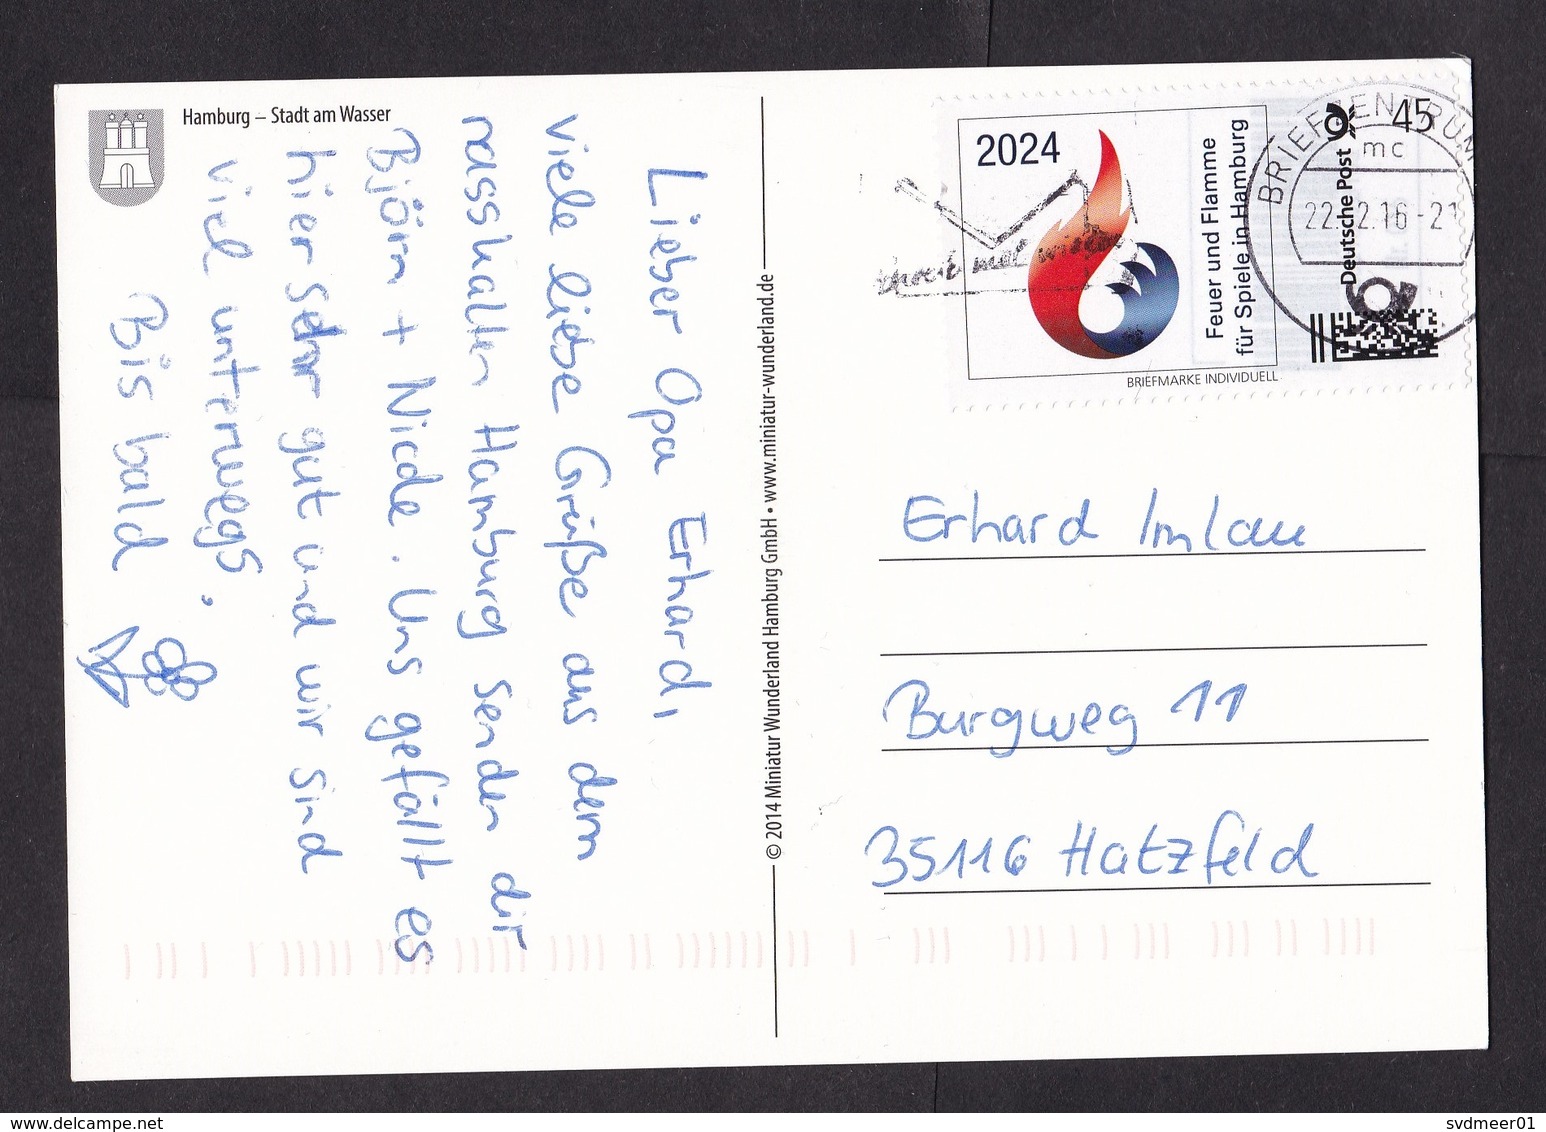 Hamburg – Stadt am Wasser
Lieber Opa Erhard,
viele liebe Grüße aus dem
nasskalten Hamburg senden dir
Björn + Nicole. Uns gefällt es
hier sehr gut und wir sind
viel unterwegs.
Bis bald
© 2014 Miniatur Wunderland Hamburg GmbH • www.miniatur-wunderland.de
2024
Feuer und Flamme
für Spiele in Hamburg
BRIEFMARKE INDIVIDUELL
Deutsche Post
45
BRIEFZENTRUM
mc
schreib mal wieder
Erhard Imlau
Burgweg 11
35116 Hatzfeld
svdmeer01
delcampe.net